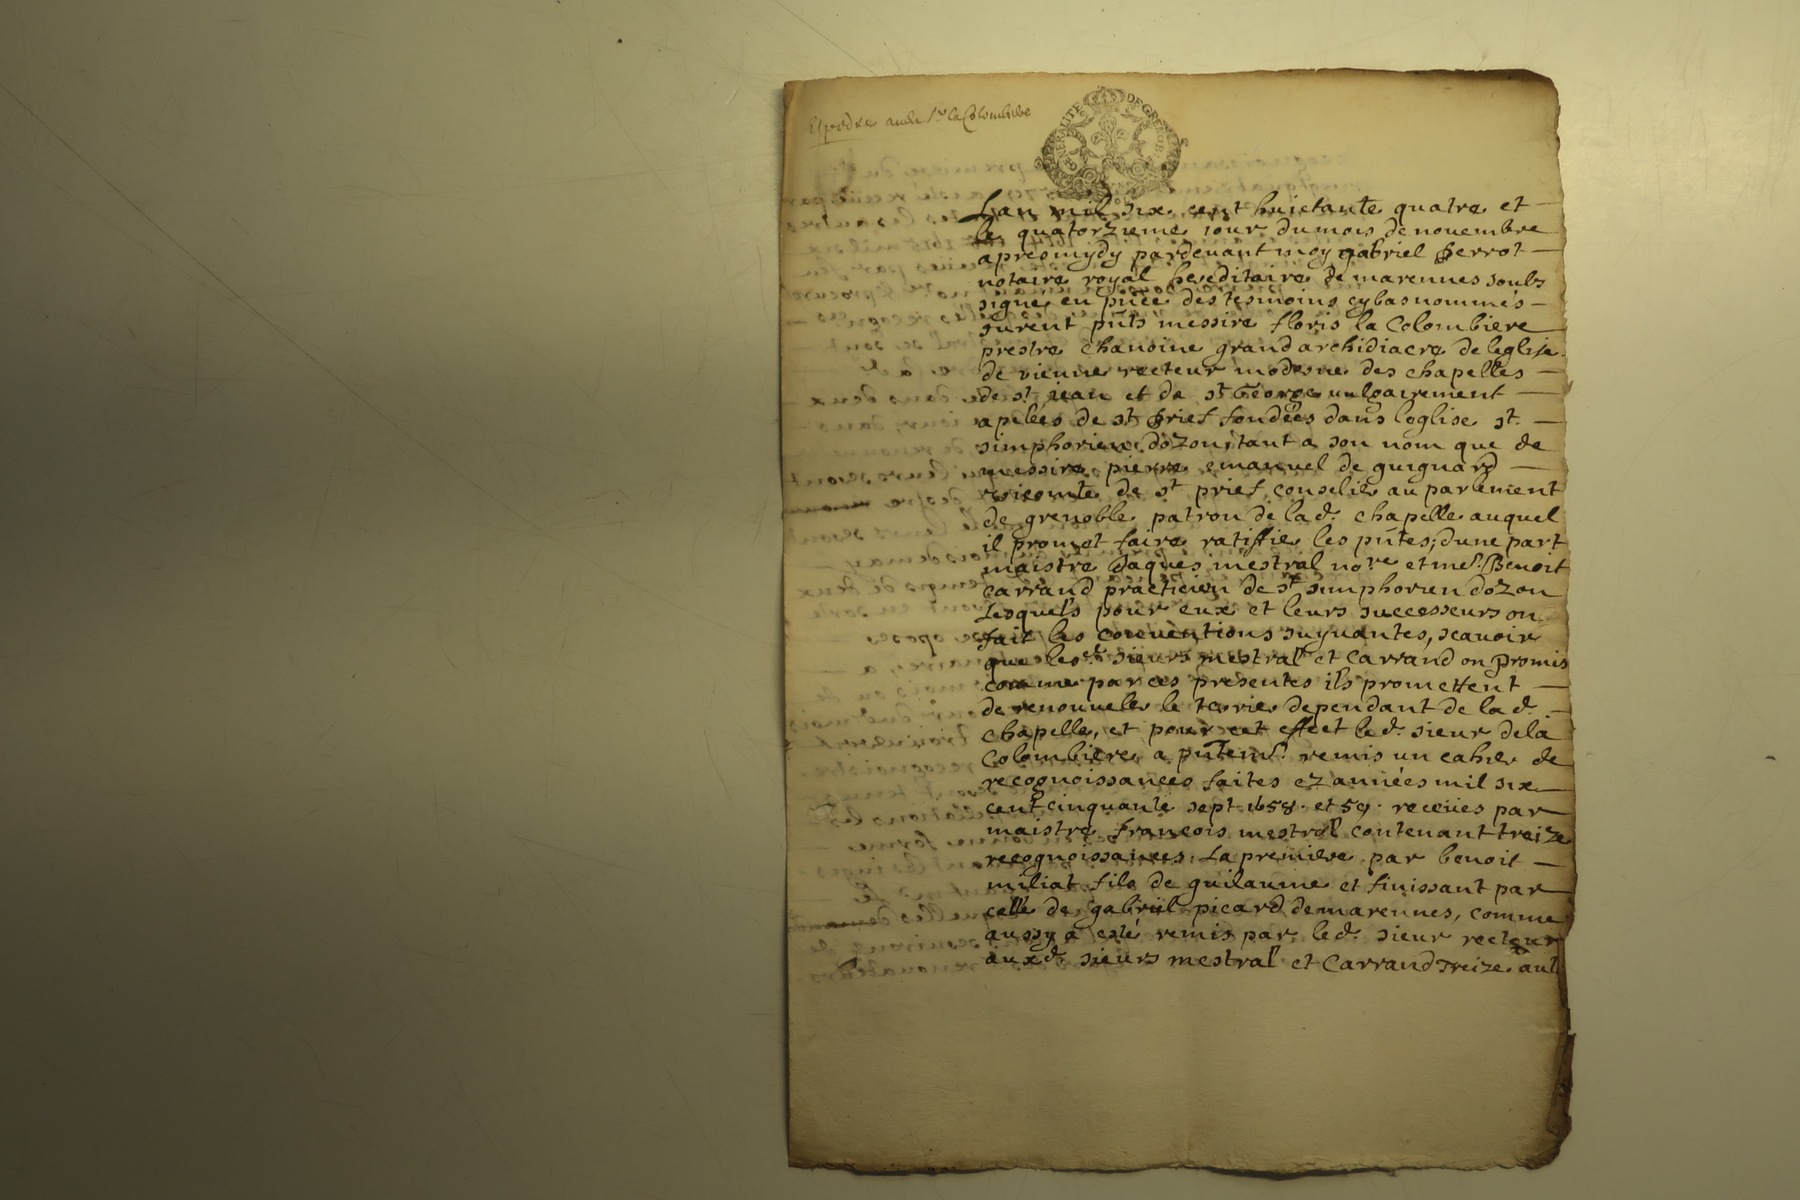 Expedie audit Sr la Colombiere
GENERALITE DE GRENOBLE
Lan mil six cent huictante quatre et
le quatorzieme iour du mois de novembre
apresmydy pardevant moy gabriel perrot
notaire royal hereditaire de marennes soubz
signe en pnce des tesmoins cybas nommés
furent pnts messire floris la Colombiere
prestre chanoine grand archidiacre de leglise
de vienne recteur moderne des chapelles
de st iean et de st George vulgairement
apelées de st Prief fondées dans leglise st.
simphorien dozon, tant a son nom que de
messire pierre emanuel de guignard
vicomte de st prief, conselier au parlement
de grenoble patron de lad. chapelle auquel
il promet faire ratiffier les pntes; dune part
maistre Jaques mestral nore et me. Benoit
Carrand practicien de st simphorien dozon
Lesquels pour eux et leurs successeurs on
fait les conventions suyvantes, scavoir
que lesd. sieurs mestral et Carrand on promis
comme par ces presentes ils promettent
de renouveler le terrier dependant de lad.
chapelle, et pour cet effect led. sieur dela
Colombiere a pntemt. remis un cahier de
recognoissances faites ez années mil six
cent cinquante sept 1658. et 59. receües par
maistre françois mestral contenant treize
recognoissances. La premiere par benoit
miliat fils de guilaume et finissant par
celle de gabriel picard de marennes, comme
aussy a esté remis par led. sieur recteur
auxd. sieurs mestral et Carrand treize aut